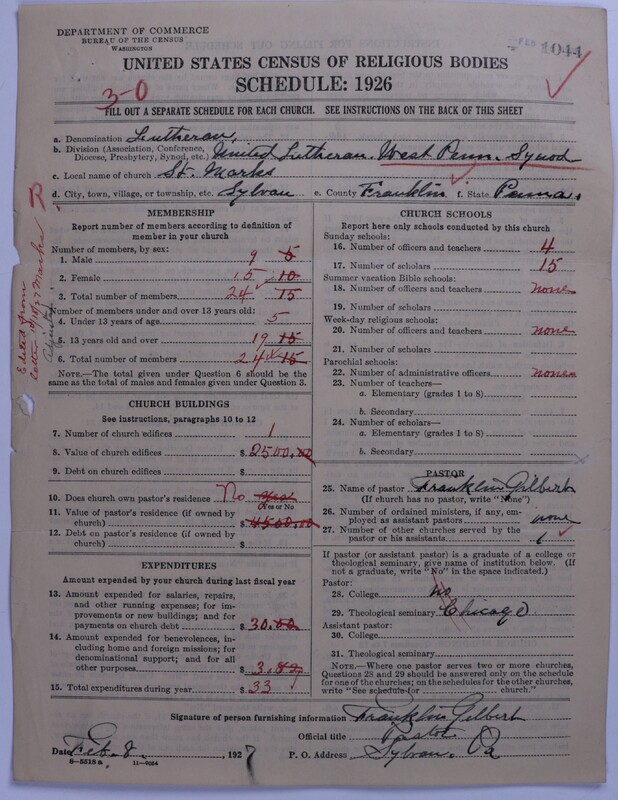 DEPARTMENT OF COMMERCE
BUREAU OF THE CENSUS
WASHINGTON
FEB 1044
UNITED STATES CENSUS OF RELIGIOUS BODIES
SCHEDULE: 1926
3-0
FILL OUT A SEPARATE SCHEDULE FOR EACH CHURCH. SEE INSTRUCTIONS ON THE BACK OF THIS SHEET
a. Denomination Lutheran,
b. Division (Association, Conference, Diocese, Presbytery, Synod, etc.) United Lutheran. West Penn. Synod
c. Local name of church St. Marks
d. City, town, village, or township, etc. Sylvan e. County Franklin f. State Penna.
MEMBERSHIP
Report number of members according to definition of member in your church
Number of members, by sex:
1. Male 9 5
2. Female 15 10
3. Total number of members 24 15
Number of members under and over 13 years old:
4. Under 13 years of age 5
5. 13 years old and over 19 15
6. Total number of members 24 15
NOTE.—The total given under Question 6 should be the same as the total of males and females given under Question 3.
Edited from
letter
CHURCH BUILDINGS
See instructions, paragraphs 10 to 12
7. Number of church edifices 1
8. Value of church edifices $ 2500.00
9. Debt on church edifices $
10. Does church own pastor's residence No Yes
Yes or No
11. Value of pastor's residence (if owned by church) $ 4500.00
12. Debt on pastor's residence (if owned by church) $
EXPENDITURES
Amount expended by your church during last fiscal year
13. Amount expended for salaries, repairs, and other running expenses; for improvements or new buildings; and for payments on church debt $ 30.00
14. Amount expended for benevolences, including home and foreign missions; for denominational support; and for all other purposes $ 3.82
15. Total expenditures during year $ 33
CHURCH SCHOOLS
Report here only schools conducted by this church
Sunday schools:
16. Number of officers and teachers 4
17. Number of scholars 15
Summer vacation Bible schools:
18. Number of officers and teachers none
19. Number of scholars
Week-day religious schools:
20. Number of officers and teachers none
21. Number of scholars
Parochial schools:
22. Number of administrative officers none
23. Number of teachers—
a. Elementary (grades 1 to 8)
b. Secondary
24. Number of scholars—
a. Elementary (grades 1 to 8)
b. Secondary
PASTOR
25. Name of pastor Franklin Gilbert
(If church has no pastor, write "None")
26. Number of ordained ministers, if any, employed as assistant pastors none
27. Number of other churches served by the pastor or his assistants
If pastor (or assistant pastor) is a graduate of a college or theological seminary, give name of institution below. (If not a graduate, write "No" in the space indicated.)
Pastor:
28. College no
29. Theological seminary Chicago
Assistant pastor:
30. College
31. Theological seminary
NOTE.—Where one pastor serves two or more churches, Questions 28 and 29 should be answered only on the schedule for one of the churches; on the schedules for the other churches, write "See schedule for church."
Signature of person furnishing information Franklin Gilbert
Official title Pastor
Date Feb. 8. 1927 P. O. Address Sylvan. Pa
8-5518a 11-9054